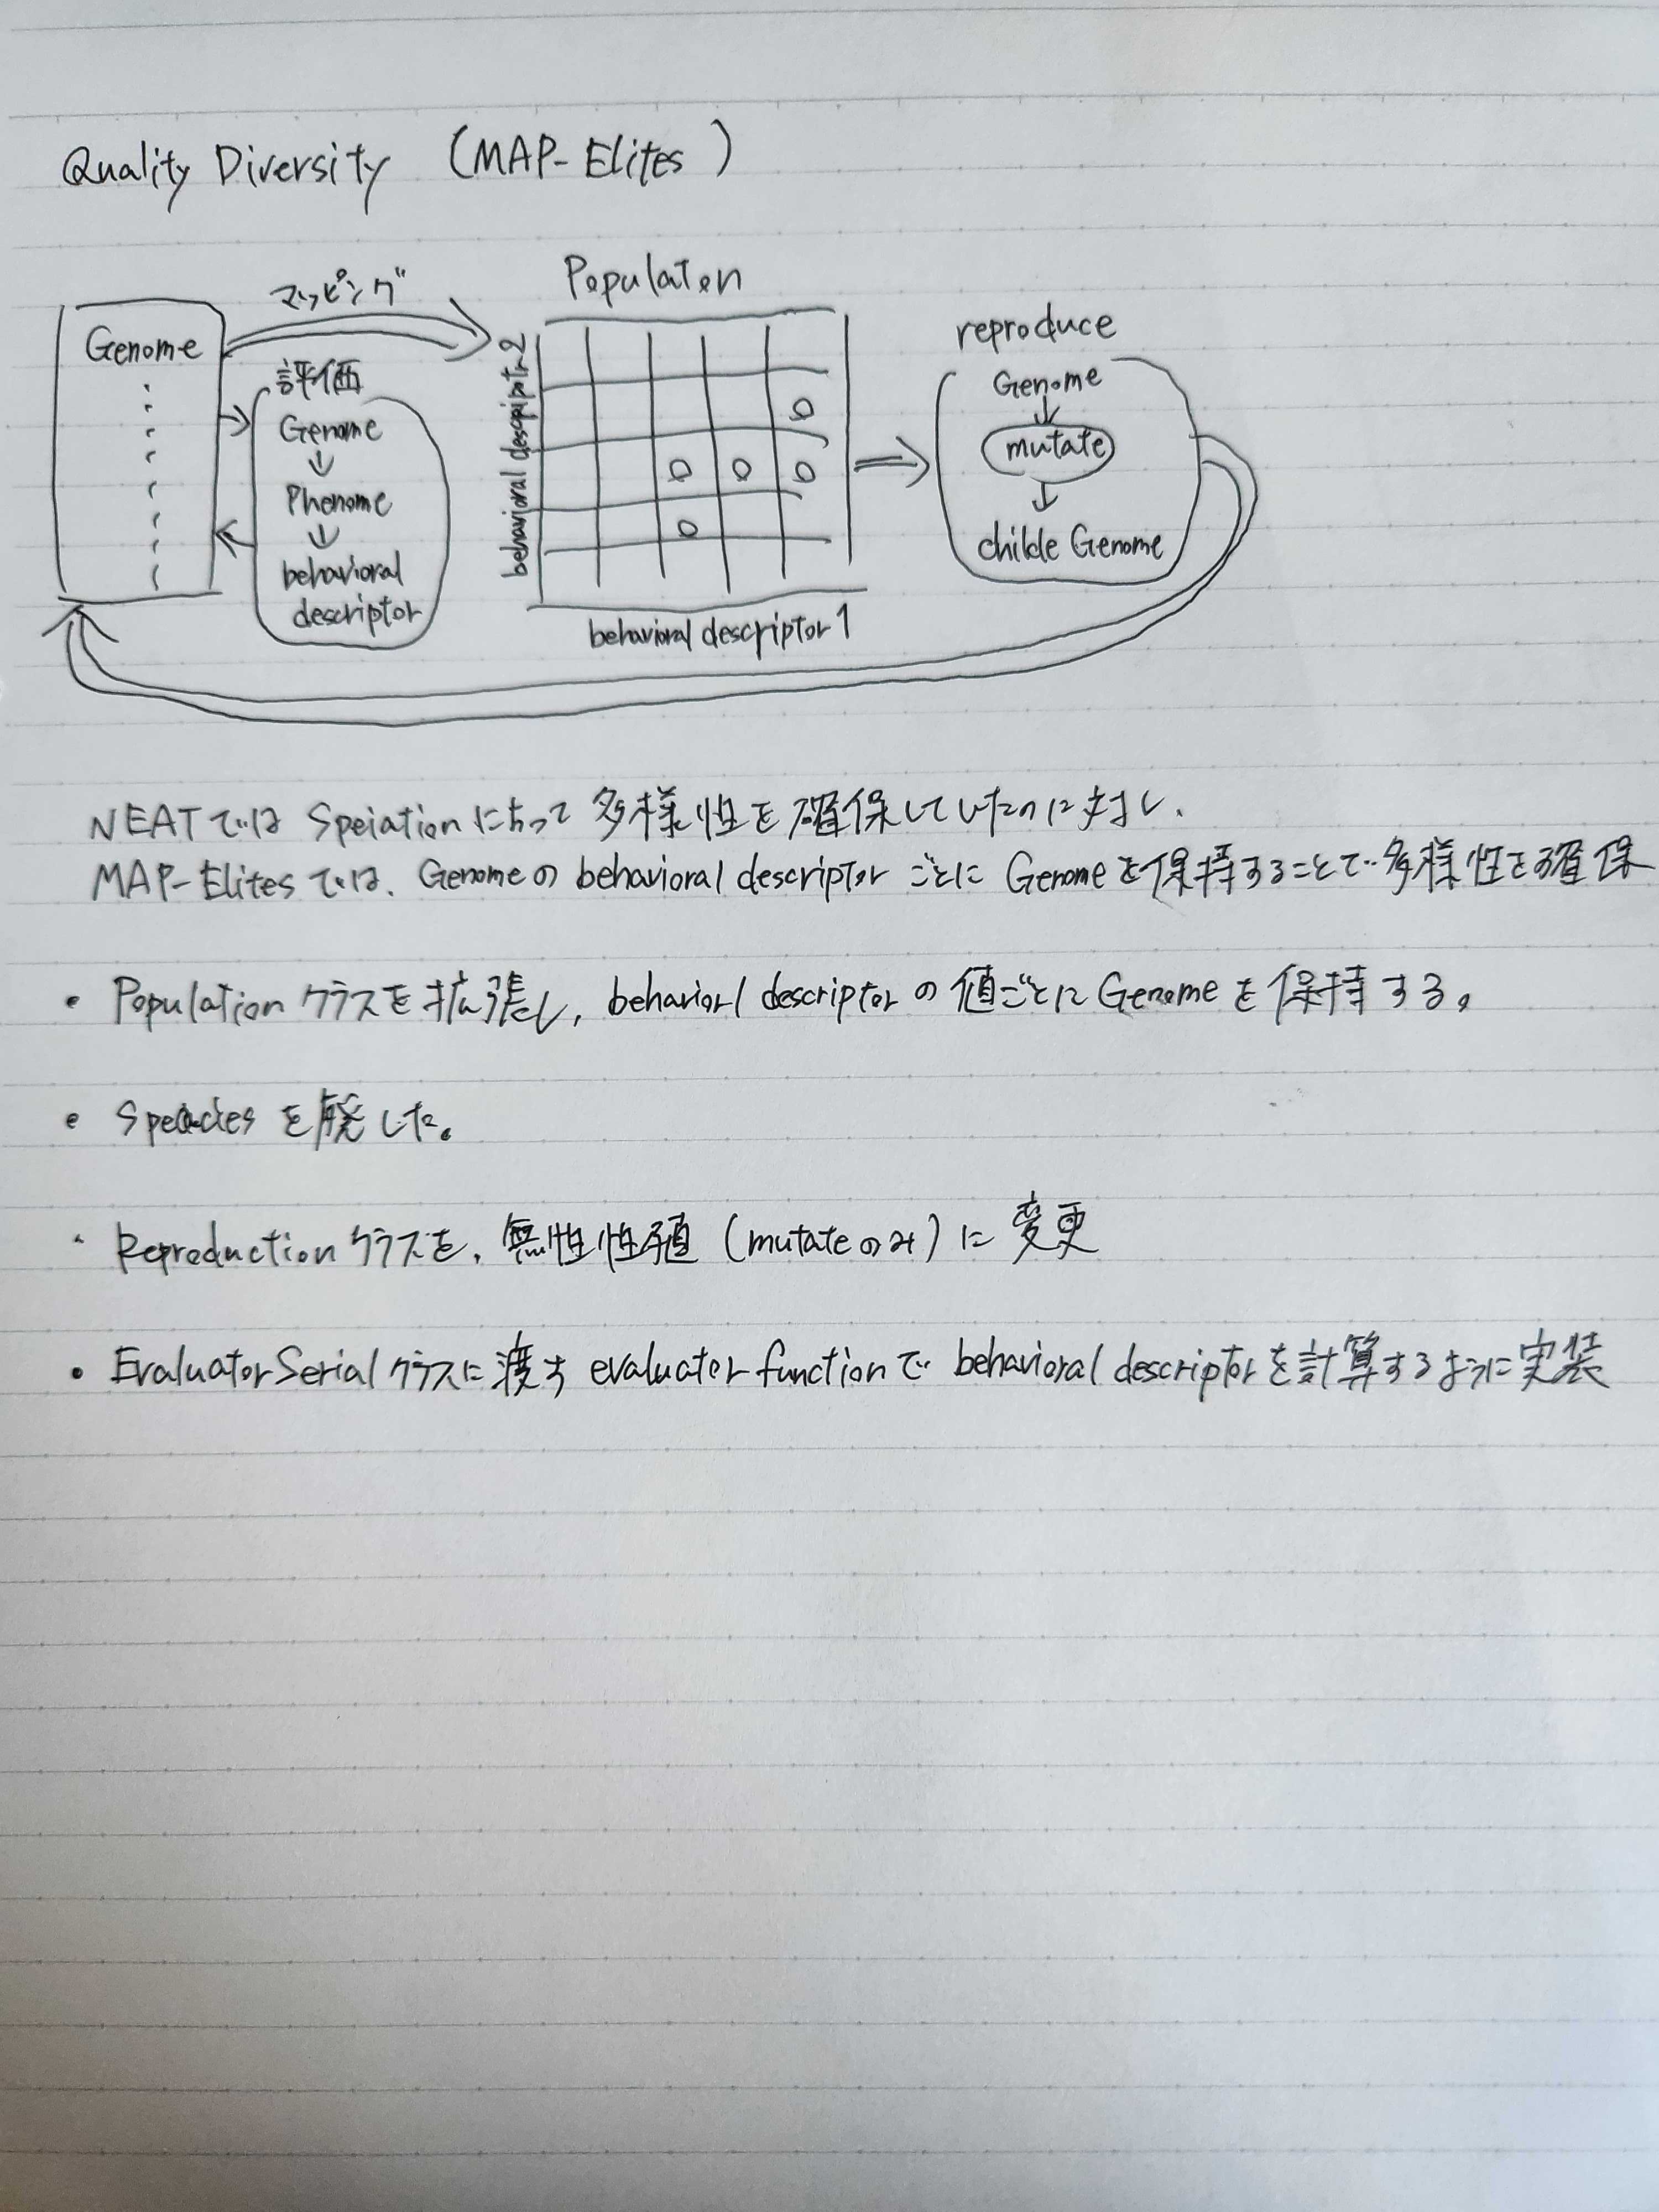 Quality Diversity (MAP-Elites)
マッピング
Genome
評価
Genome
Phenome
behavioral
descriptor
Populaton
behavioral descripotr 2
behavioral descriptor 1
reproduce
Genome
mutate
childe Genome
NEATでは Speiationによって多様性を確保していたのに対し、
MAP-Elitesでは、Genomeの behavioral descriptor ごとに Genomeを保持することで多様性を確保
• Populationクラスを拡張し, behaviorl descriptor の値ごとに Genomeを保持する。
• Speacies を廃した。
• Reproductionクラスを, 無性性殖 (mutateのみ) に変更
• EvaluatorSerialクラスに渡す evaluator functionで behavioral descriptorを計算するように実装